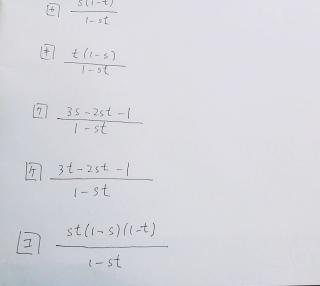 カ s(1-t)/1-st
キ t(1-s)/1-st
ク 3s-2st-1/1-st
ケ 3t-2st-1/1-st
コ st(1-s)(1-t)/1-st